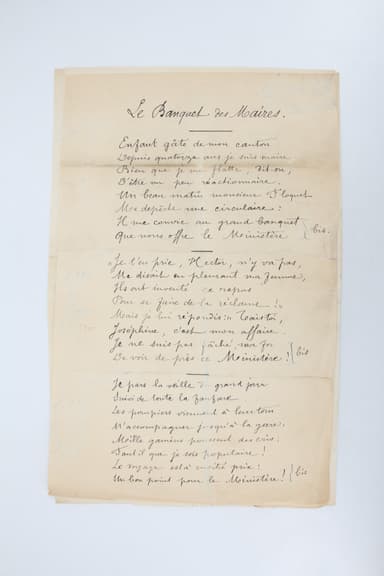 Le Banquet des Maires.
Enfant gâté de mon canton
Depuis quatorze ans je suis maire
Bien que je me flatte, dit-on,
D'être un peu réactionnaire.
Un beau matin monsieur Floquet
Me dépêche une circulaire :
Il me convie au grand banquet
Que nous offre le Ministère } bis.
Je t'en prie, Hector, n'y va pas,
Me disait en pleurant ma femme,
Ils ont inventé ce repas
Pour se faire de la réclame !
Mais je lui répondis :
Joséphine, c'est mon affaire
Je ne suis pas fâché, ma foi
De voir de près ce Ministère ! } bis
Je pars la veille du grand jour
Suivi de toute la fanfare
Les pompiers viennent à leur tour
M'accompagner jusqu'à la gare :
Mille gamins poussent des cris :
Faut-il que je sois populaire !
Le voyage est à moitié prix :
Un bon point pour le Ministère ! } bis